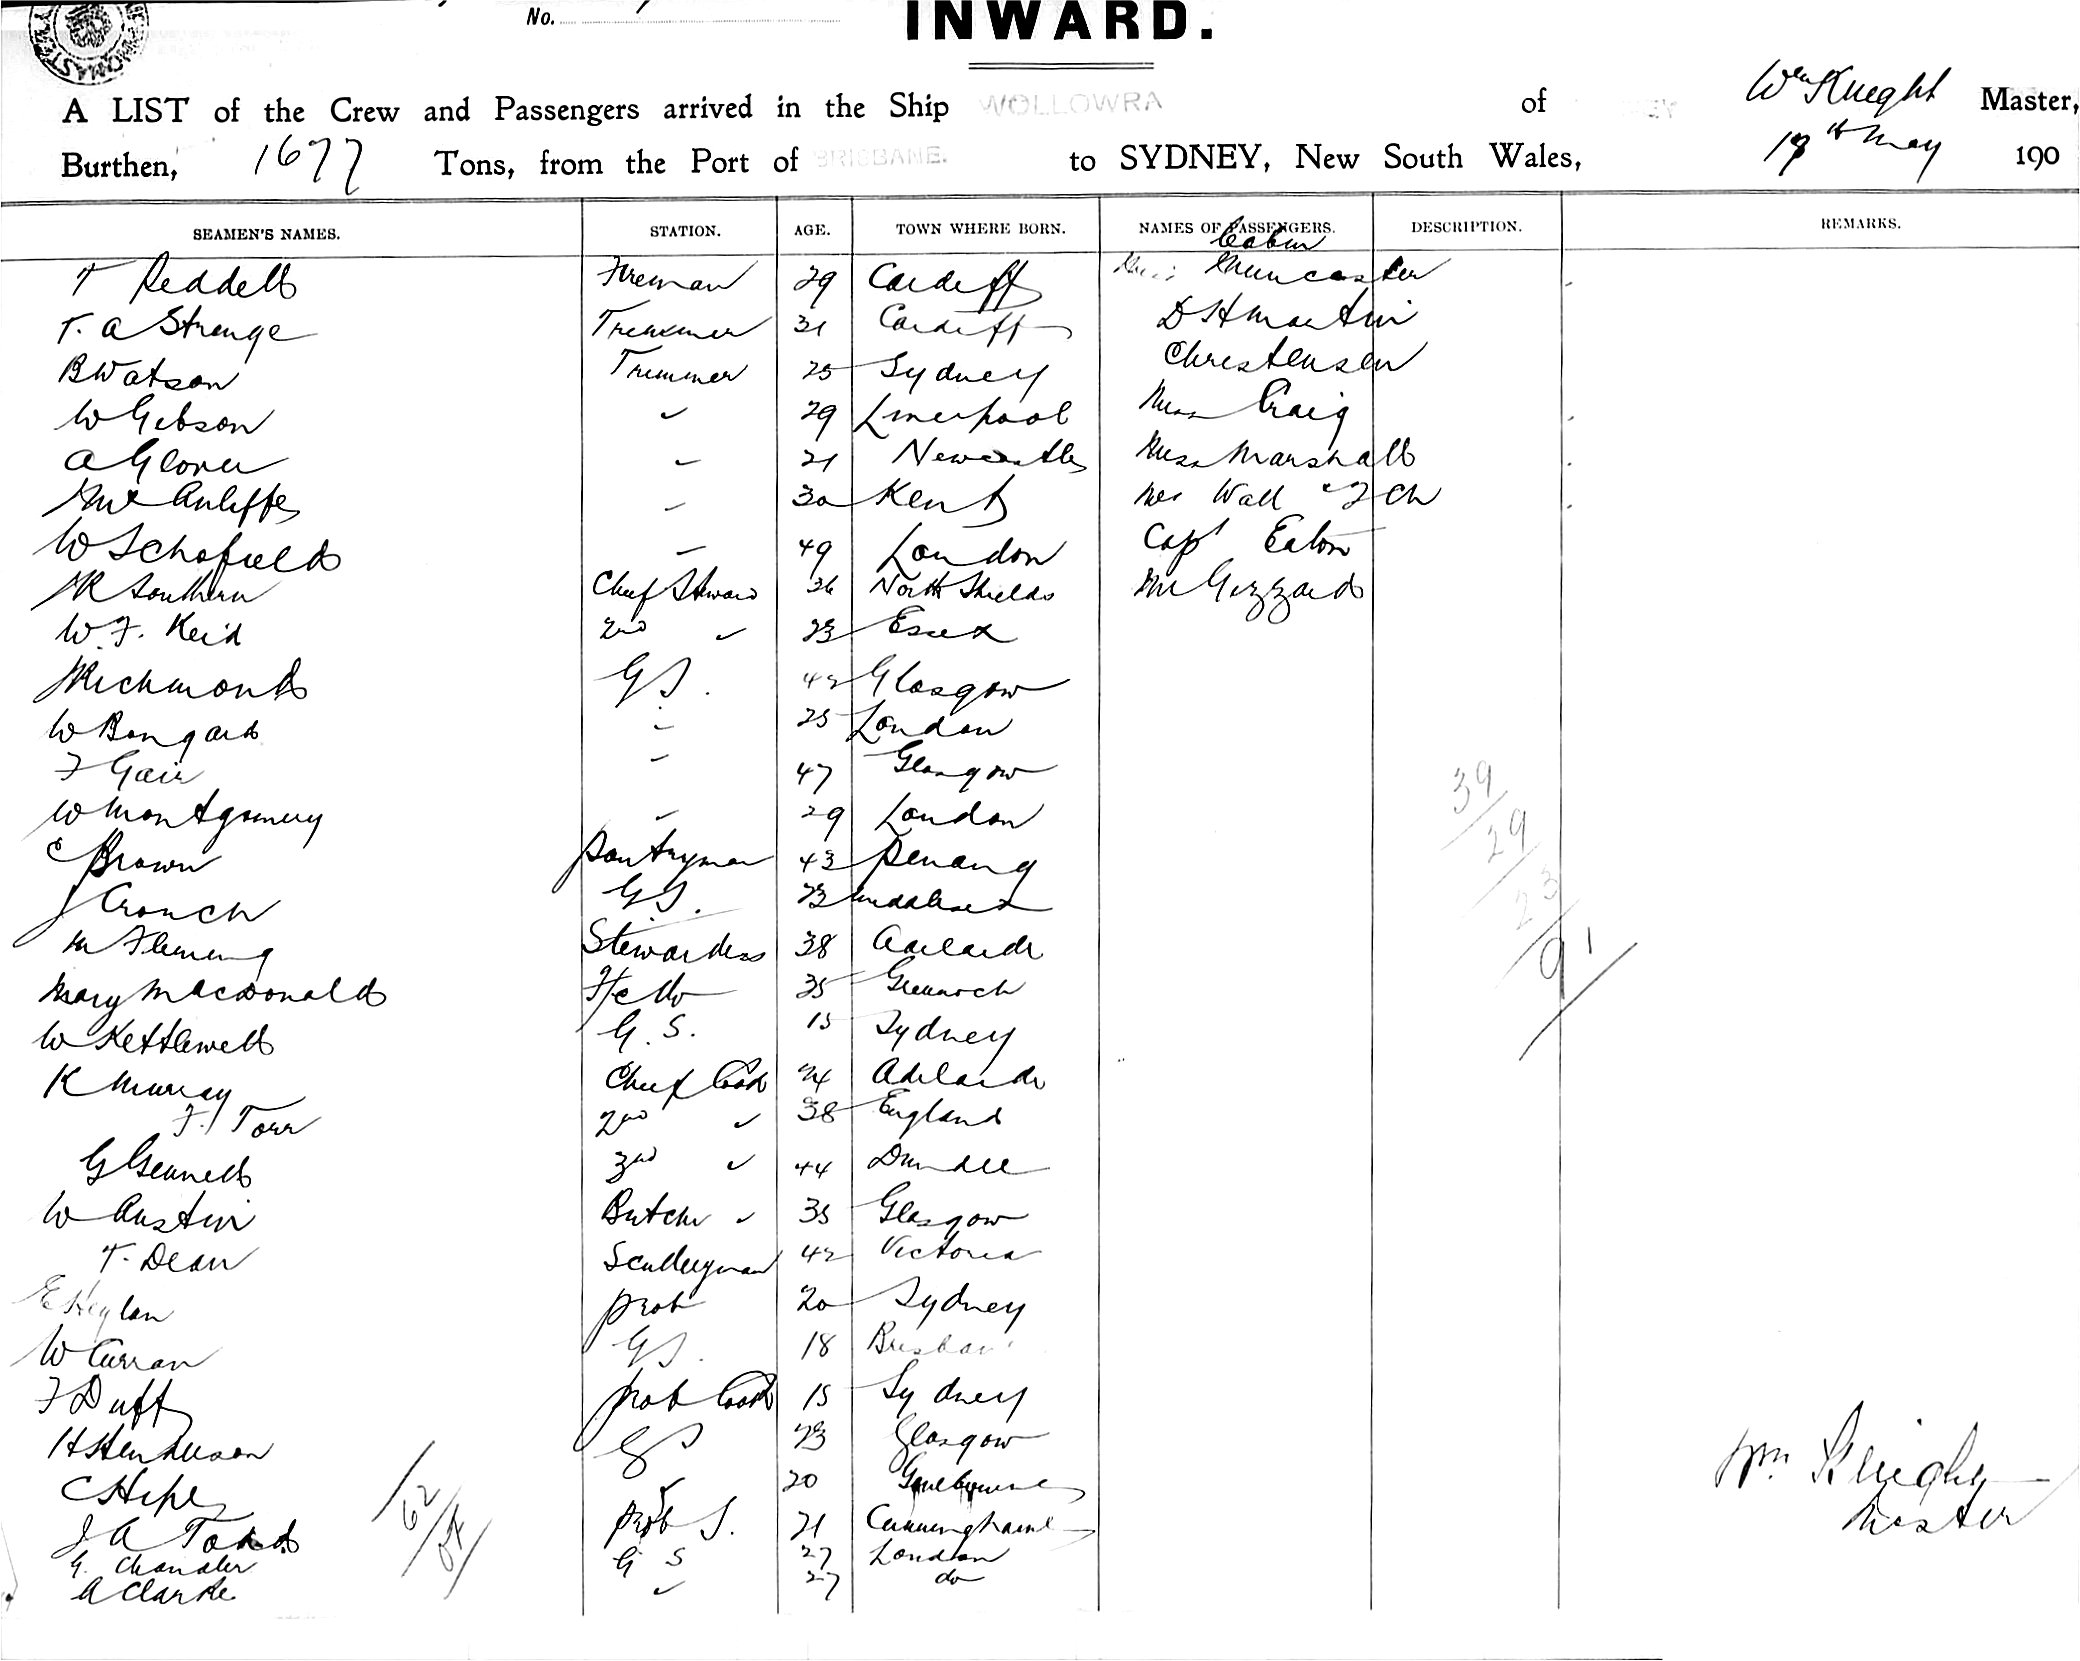 No.
INWARD.
A LIST of the Crew and Passengers arrived in the Ship WOLLOWRA of Wm Knight Master,
Burthen, 1677 Tons, from the Port of BRISBANE. to SYDNEY, New South Wales, 19th May 190
SEAMEN'S NAMES. STATION. AGE. TOWN WHERE BORN. NAMES OF PASSENGERS. DESCRIPTION. REMARKS.
Cabin
T Reddell Fireman 29 Cardiff Muncaster
T. A Strange Trimmer 31 Cardiff D H Martin
B Watson Trimmer 25 Sydney Christensen
W Gibson " 29 Liverpool Miss Craig
A Glover " 21 Newcastle Miss Marshall
Auliffe " 30 Kent Mrs Wall & 2 Ch
W Schofield " 49 London Capt Eaton
J R Southern Chief Steward 36 North Shields Mr Gizzard
W. F. Reid 2nd " 23 Essex
J Richmond G S. 42 Glasgow
W Bongard " 25 London
F Gair " 47 Glasgow
W Montgomery " 29 London
C Brown Pantryman 43 Penang
J Crouch G S. 23 Middlesex
M Fleming Stewardess 38 Adelaide
Mary MacDonald F/C do 35 Greenock
W Kettlewell G. S. 15 Sydney
K Murray Chief Cook 24 Adelaide
F. Torr 2nd " 38 England
G Gennell 3rd " 44 Dundee
W Austin Butcher " 35 Glasgow
T. Dean Sculleryman 42 Victoria
E Heylan Prob 20 Sydney
W Curran G S. 18 Brisbane
F Duff Prob Cook 15 Sydney
H Henderson G S 23 Glasgow
C Hipe " 20
J A Todd Prob S. 21 Cunninghame
G. Chandler G S 27 London
A Clarke " 27 do
39
29
23
91
62
54
Wm Knight
Master